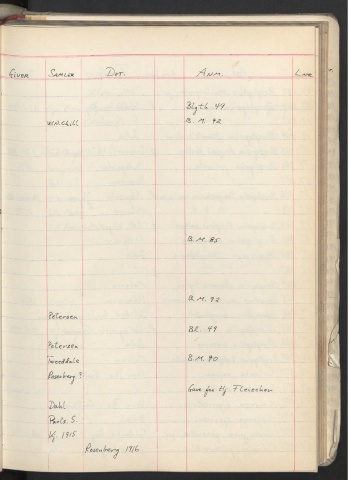 GIVER SAMLER DET. ANM. LNR
Blyth 49
W.N. Chill B.M. 92
B.M. 85
B.M. 92
Petersen
Bl. 49
Petersen
Tweeddale B.M. 90
Rosenberg ?
Gave fra Kj. Fleischer
Dahl
Paris. S.
Kj. 1915
Rosenberg 1916